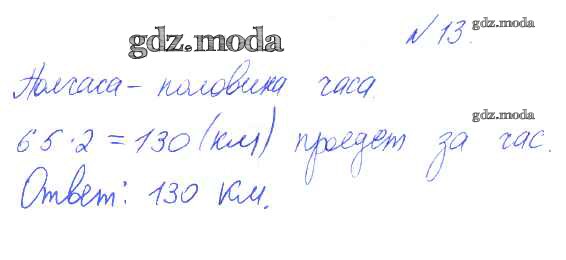 gdz.moda
№ 13.
gdz.moda
Полчаса – половина часа.
gdz.moda
65 · 2 = 130 (км) проедет за час.
Ответ: 130 км.
gdz.moda